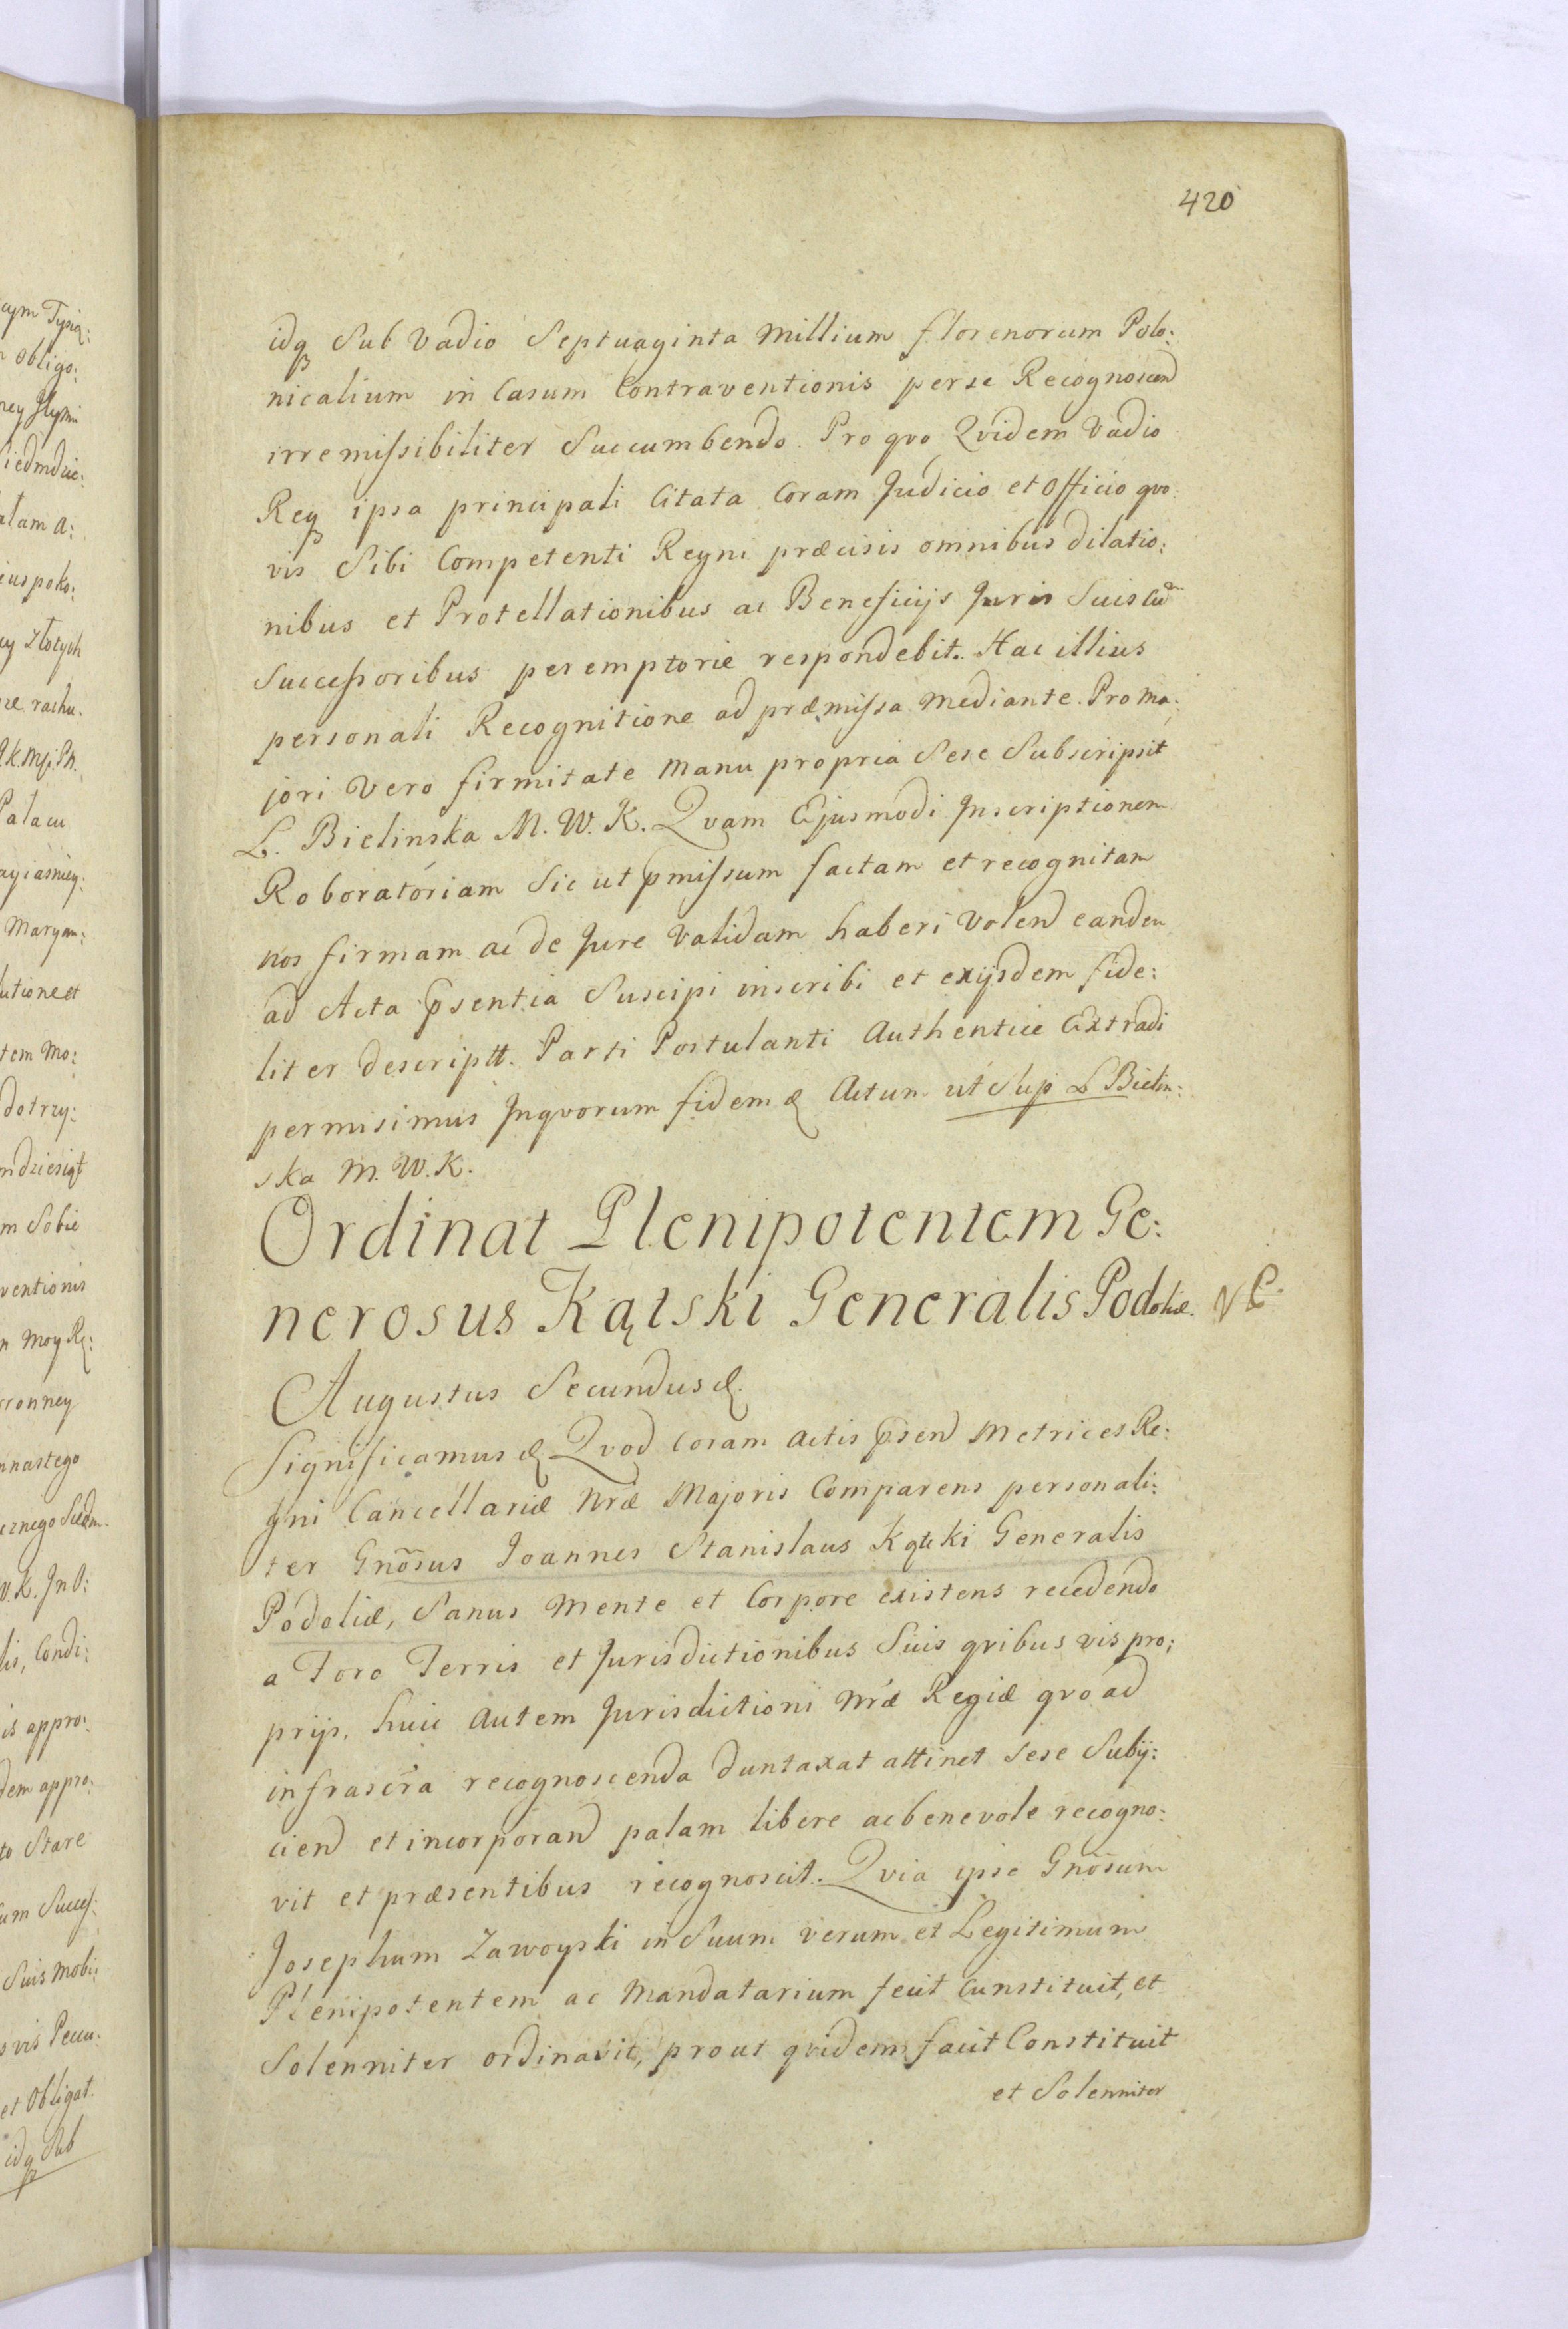 420
idq Sub Vadio Septuaginta Millium florenorum Polo:
nicalium in Casum Contraventionis per se Recognoscend
irremissibiliter Succumbendo. Pro qvo Qvidem Vadio
Req ipsa principali Citata Coram Judicio et Officio qvo
vis Sibi Competenti Regni præcisis omnibus dilatio:
nibus et Protellationibus ac Beneficijs Juris Suis cu
Successoribus peremptorie respondebit. Hac illius
personali Recognitione ad præmissa mediante. Pro Ma:
jori Vero firmitate Manu propria Sese Subscripsit
L. Bielinska M. W. K. Qvam Ejusmodi Inscriptionem
Roboratoriam Sic ut pmissum factam et recognitam
nos firmam ac de Jure Validam haberi Volend eandem
ad Acta psentia Suscipi inscribi et exijsdem fide:
liter descriptt. Parti Postulanti Authentice Extradi
permisimus Inqvorum fidem & Actum ut Sup L Bielin:
ska M. W. K.
Ordinat Plenipotentem Ge:
nerosus Kątski Generalis Podoliæ.
Augustus Secundus &.
Significamus & Qvod Coram Actis psend Metrices Re:
gni Cancellariæ Nræ Majoris Comparens personali:
ter Gnosus Joannes Stanislaus Kątski Generalis
Podoliæ, Sanus Mente et Corpore existens recedendo
a Foro Terris et Jurisdictionibus Suis qvibus vis pro:
prijs, huic Autem Jurisdictioni Nræ Regiæ qvo ad
infrascra recognoscenda duntaxat attinet Sese Subij:
ciend et incorporand palam libere ac benevole recogno:
vit et præsentibus recognoscit. Qvia ipse Gnosum
Josephum Zawoyski in Suum verum et Legitimum
Plenipotentem ac Mandatarium fecit Cunstituit, et
Solenniter ordinavit, prout qvidem facit Constituit
et Solenniter